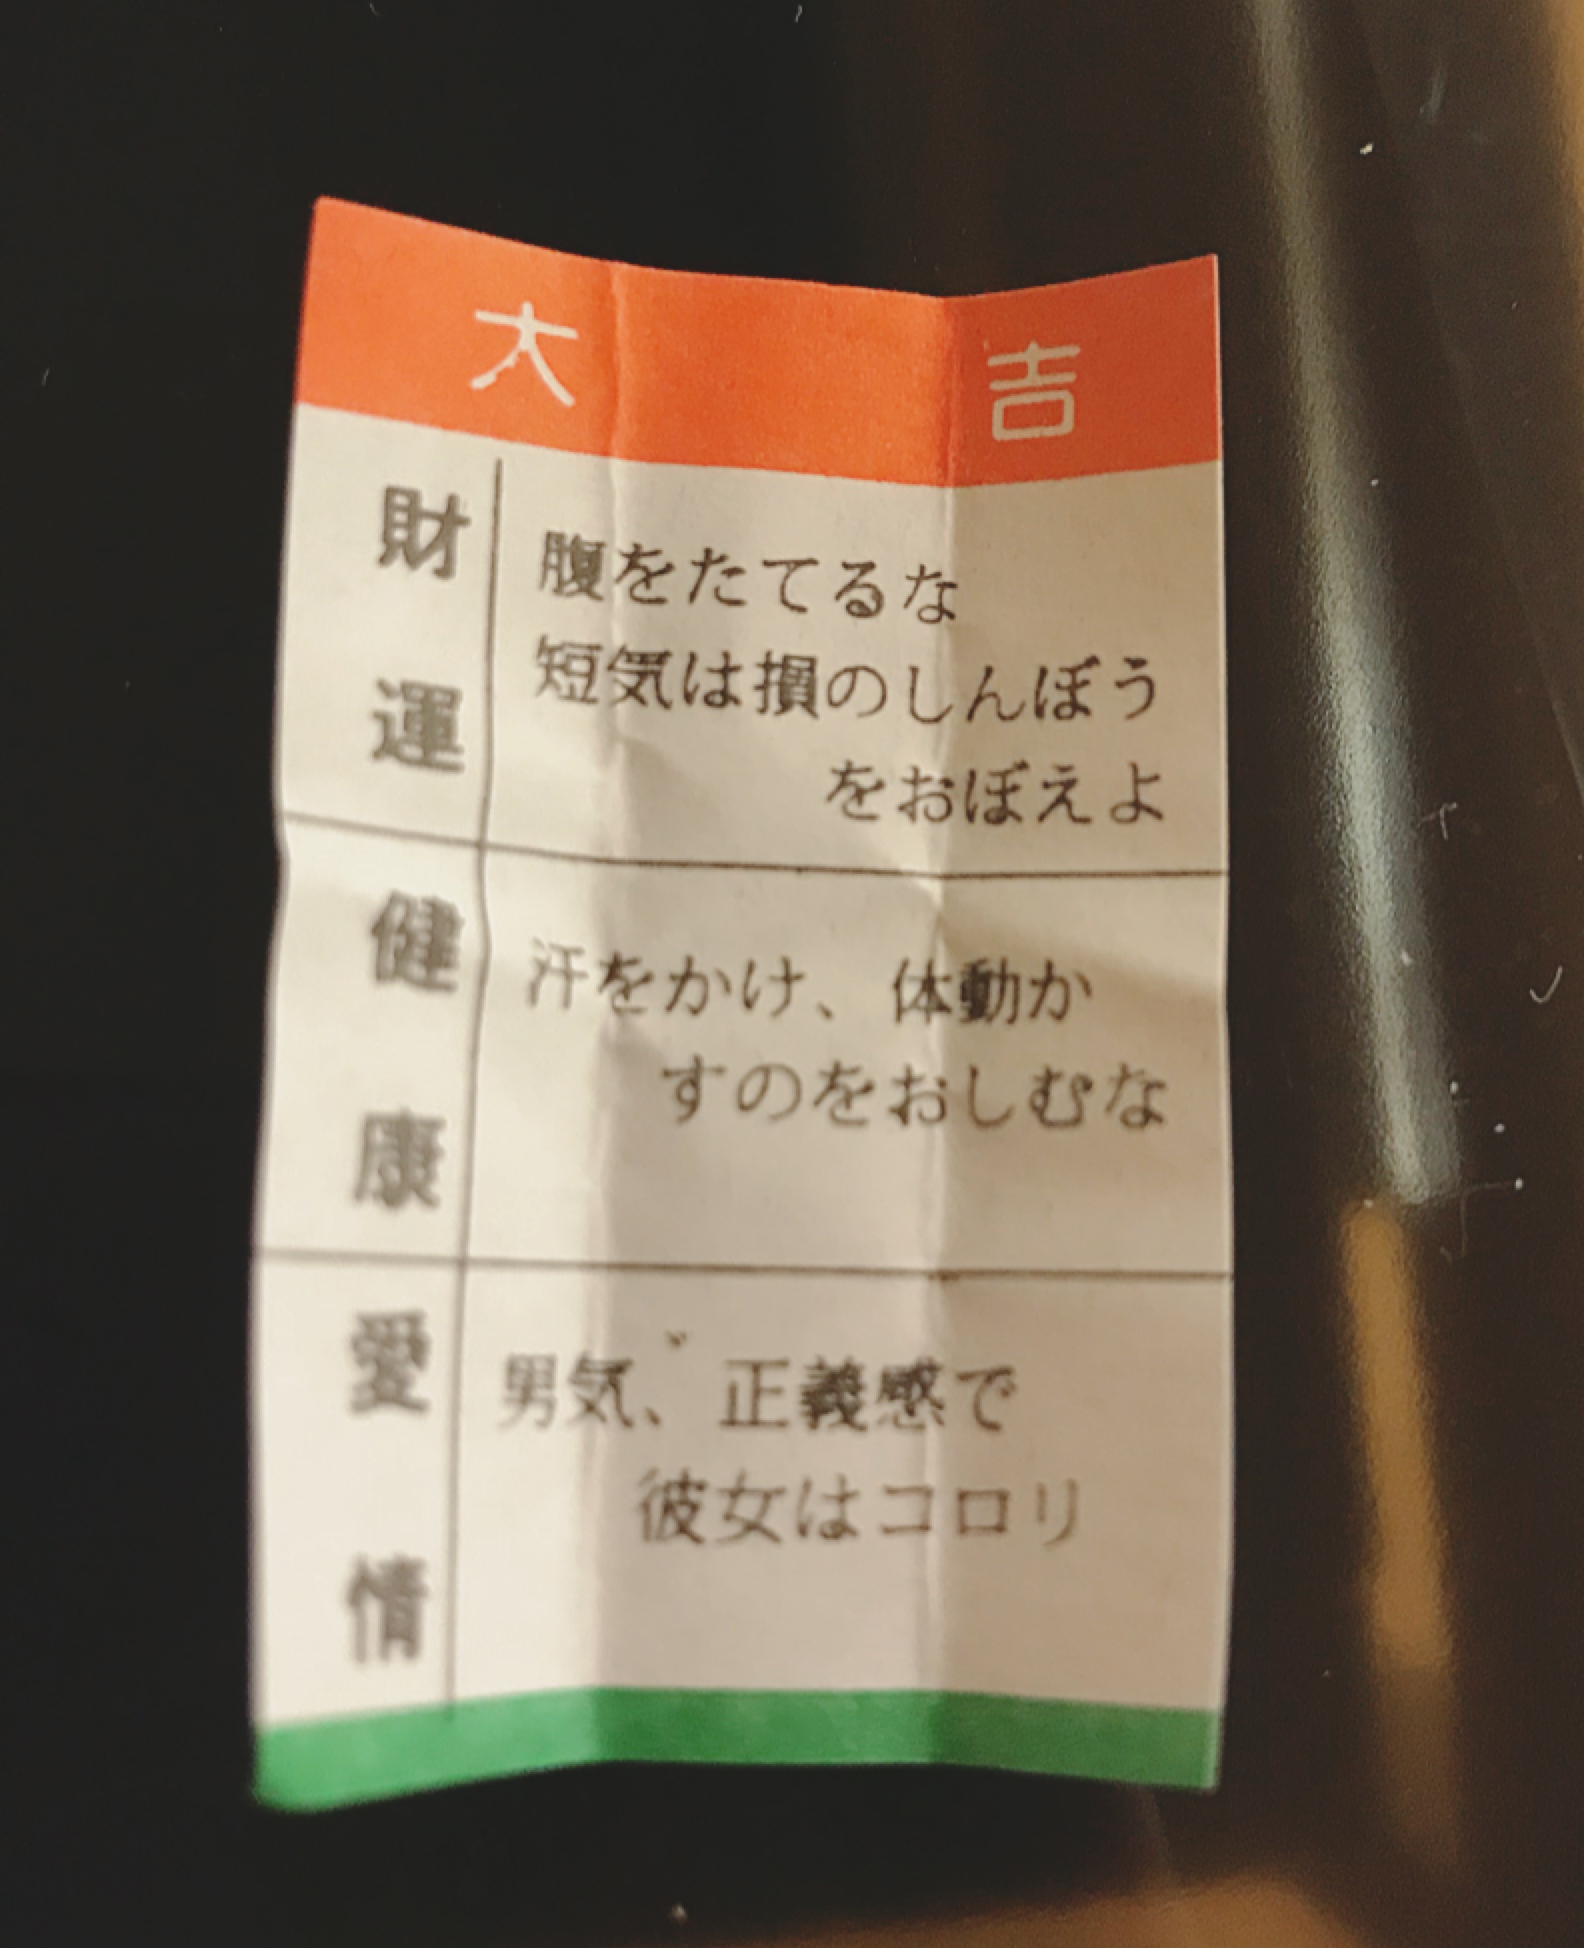 大吉
財運
腹をたてるな
短気は損のしんぼう
をおぼえよ
健康
汗をかけ、体動か
すのをおしむな
愛情
男気、正義感で
彼女はコロリ